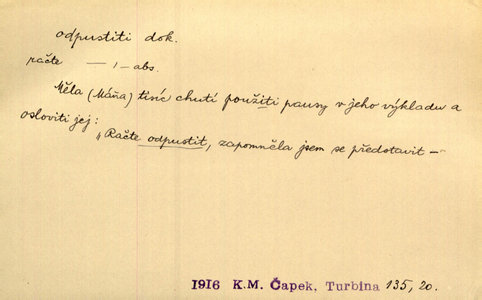 odpustiti dok.
račte — 1 – abs.
Měla (Máňa) tisíc chutí použiti pausy v jeho výkladu a
osloviti jej:
„Račte odpustit, zapomněla jsem se představit —
1916 K.M. Čapek, Turbina 135, 20.